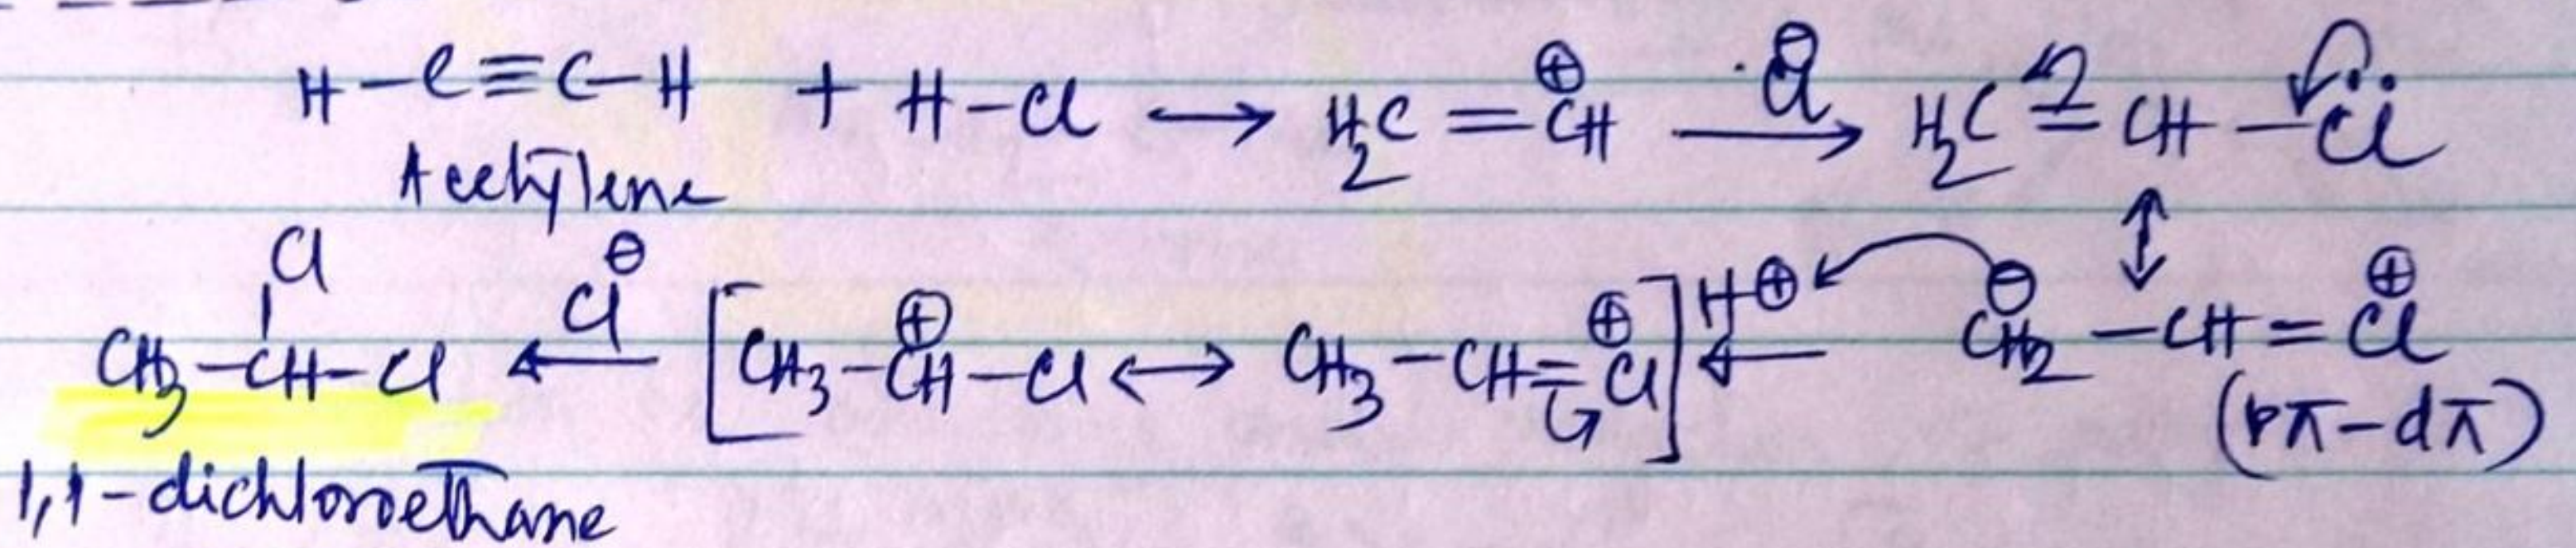 H-C≡C-H + H-Cl → H₂C=CH⊕ →(Cl⊖) H₂C=CH-C̈l
Acetylene
↕
CH₃-CH(Cl)-Cl ←(Cl⊖) [CH₃-CH⊕-Cl ↔ CH₃-CH=Cl⊕] ←(H⊕) CH₂⊖-CH=Cl⊕
(pπ-dπ)
1,1-dichloroethane